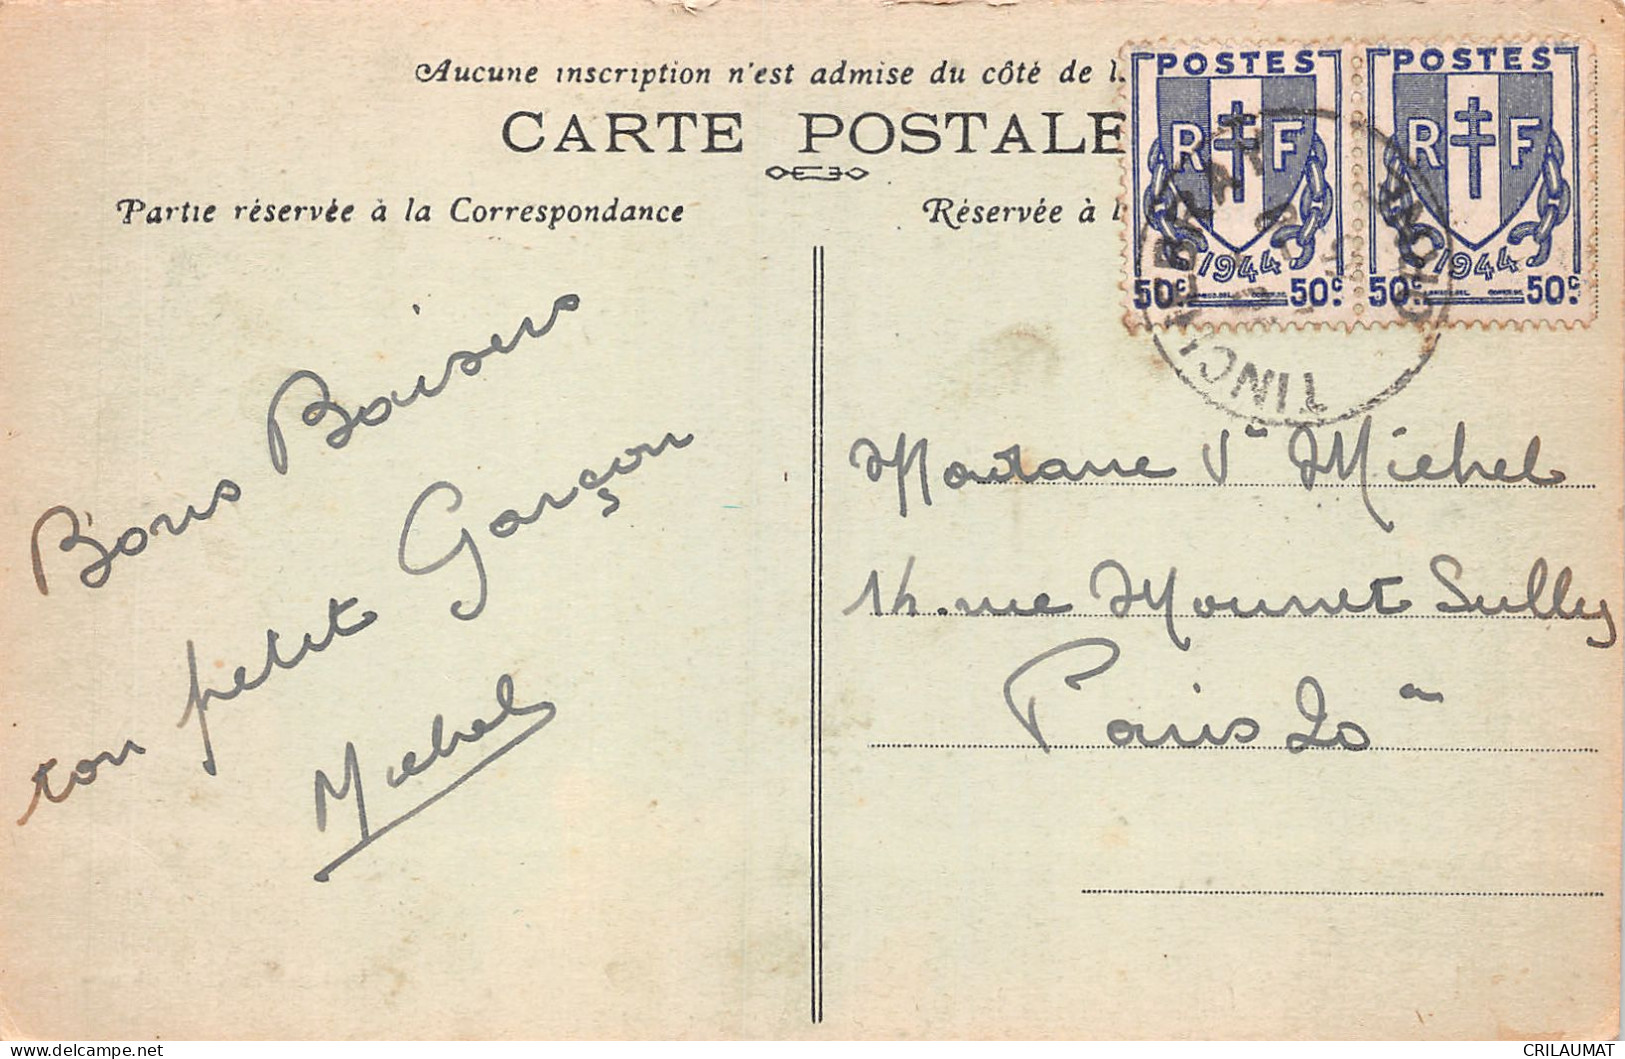 Aucune inscription n'est admise du côté de l
CARTE POSTALE
Partie réservée à la Correspondance
Réservée à l
POSTES POSTES
R F R F
1944 1944
50c 50c 50c 50c
TINCHEBRAY
ORNE
Bons Baisers
ton petit Garçon
Michel
Madame Vve Michel
14 rue Mounet Sully
Paris 20e
CRILAUMAT